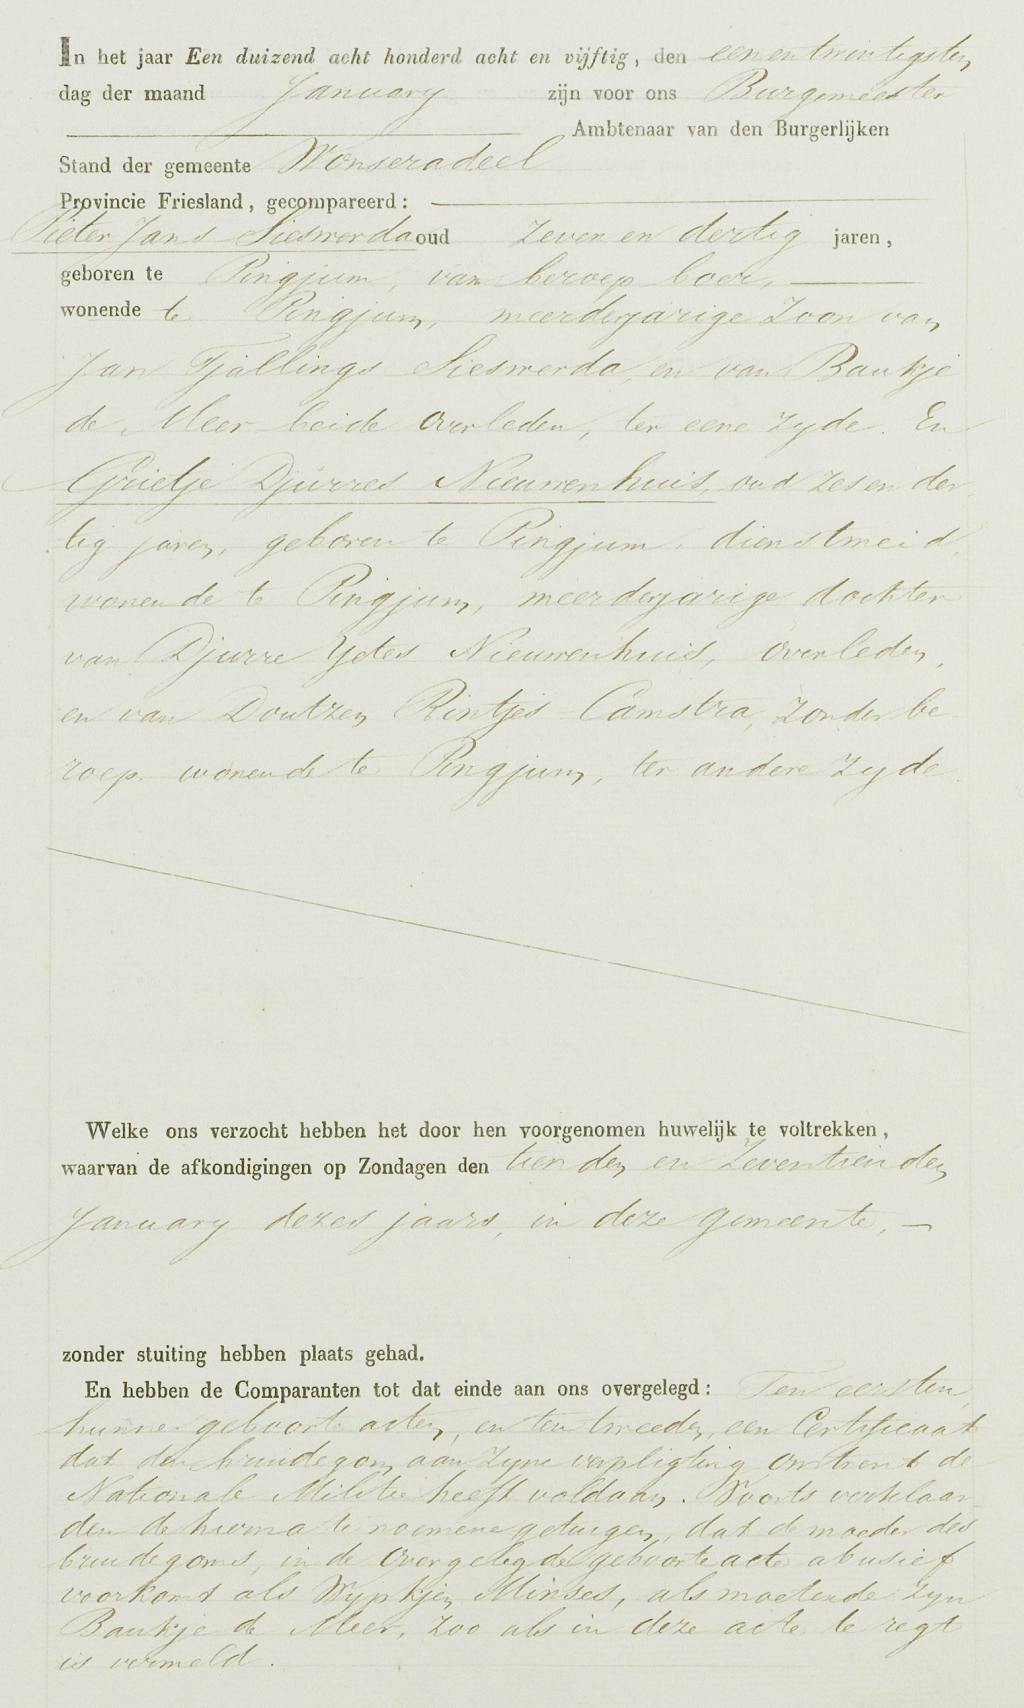 In het jaar Een duizend acht honderd acht en vijftig, den een en twintigsten
dag der maand January zijn voor ons Burgemeester
Ambtenaar van den Burgerlijken
Stand der gemeente Wonseradeel
Provincie Friesland, gecompareerd:
Pieter Jans Sieswerda oud zeven en dertig jaren,
geboren te Pingjum, van beroep boer,
wonende te Pingjum, meerderjarige zoon van
Jan Tjallings Sieswerda, en van Baukje
de Meer beide overleden, ter eene zyde. En
Grietje Djurres Nieuwenhuis, oud zes en der
tig jaren, geboren te Pingjum, dienstmeid,
wonende te Pingjum, meerderjarige dochter
van Djurre Ydes Nieuwenhuis, overleden,
en van Doutzen Rintjes Camstra, zonder be
roep, wonende te Pingjum, ter andere zyde.
Welke ons verzocht hebben het door hen voorgenomen huwelijk te voltrekken,
waarvan de afkondigingen op Zondagen den tienden en zeventienden
January dezes jaars, in deze gemeente,
zonder stuiting hebben plaats gehad.
En hebben de Comparanten tot dat einde aan ons overgelegd: Ten eersten,
hunne geboorte acten, en ten tweeden, een Certificaat
dat den bruidegom aan zyne verpligting omtrent de
Nationale Militie heeft voldaan. Voorts verklaar
den de hierna te noemene getuigen, dat de moeder des
bruidegoms, in de overgelegde geboorteacte abusief
voorkomt als Wypkjen Minses, als moetende zyn
Baukje de Meer, zoo als in deze acte te regt
is vermeld.